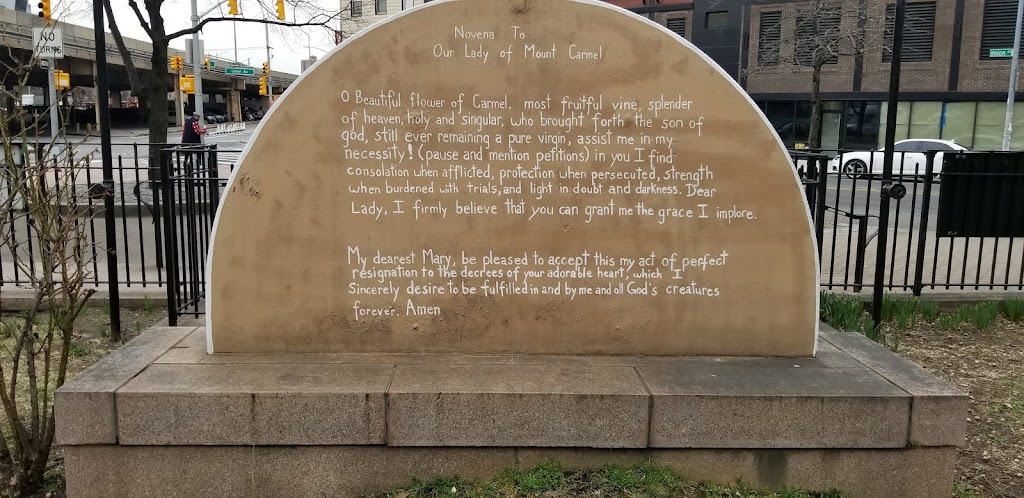 Novena To
Our Lady of Mount Carmel
O Beautiful flower of Carmel, most fruitful vine, splender
of heaven, holy and singular, who brought forth the son of
god, still ever remaining a pure virgin, assist me in my
necessity! (pause and mention petitions) in you I find
consolation when afflicted, protection when persecuted, strength
when burdened with trials, and light in doubt and darkness. Dear
Lady, I firmly believe that you can grant me the grace I implore.
My dearest Mary, be pleased to accept this my act of perfect
resignation to the decrees of your adorable heart, which I
Sincerely desire to be fulfilled in and by me and all God's creatures
forever. Amen
NO
TURNS
Union